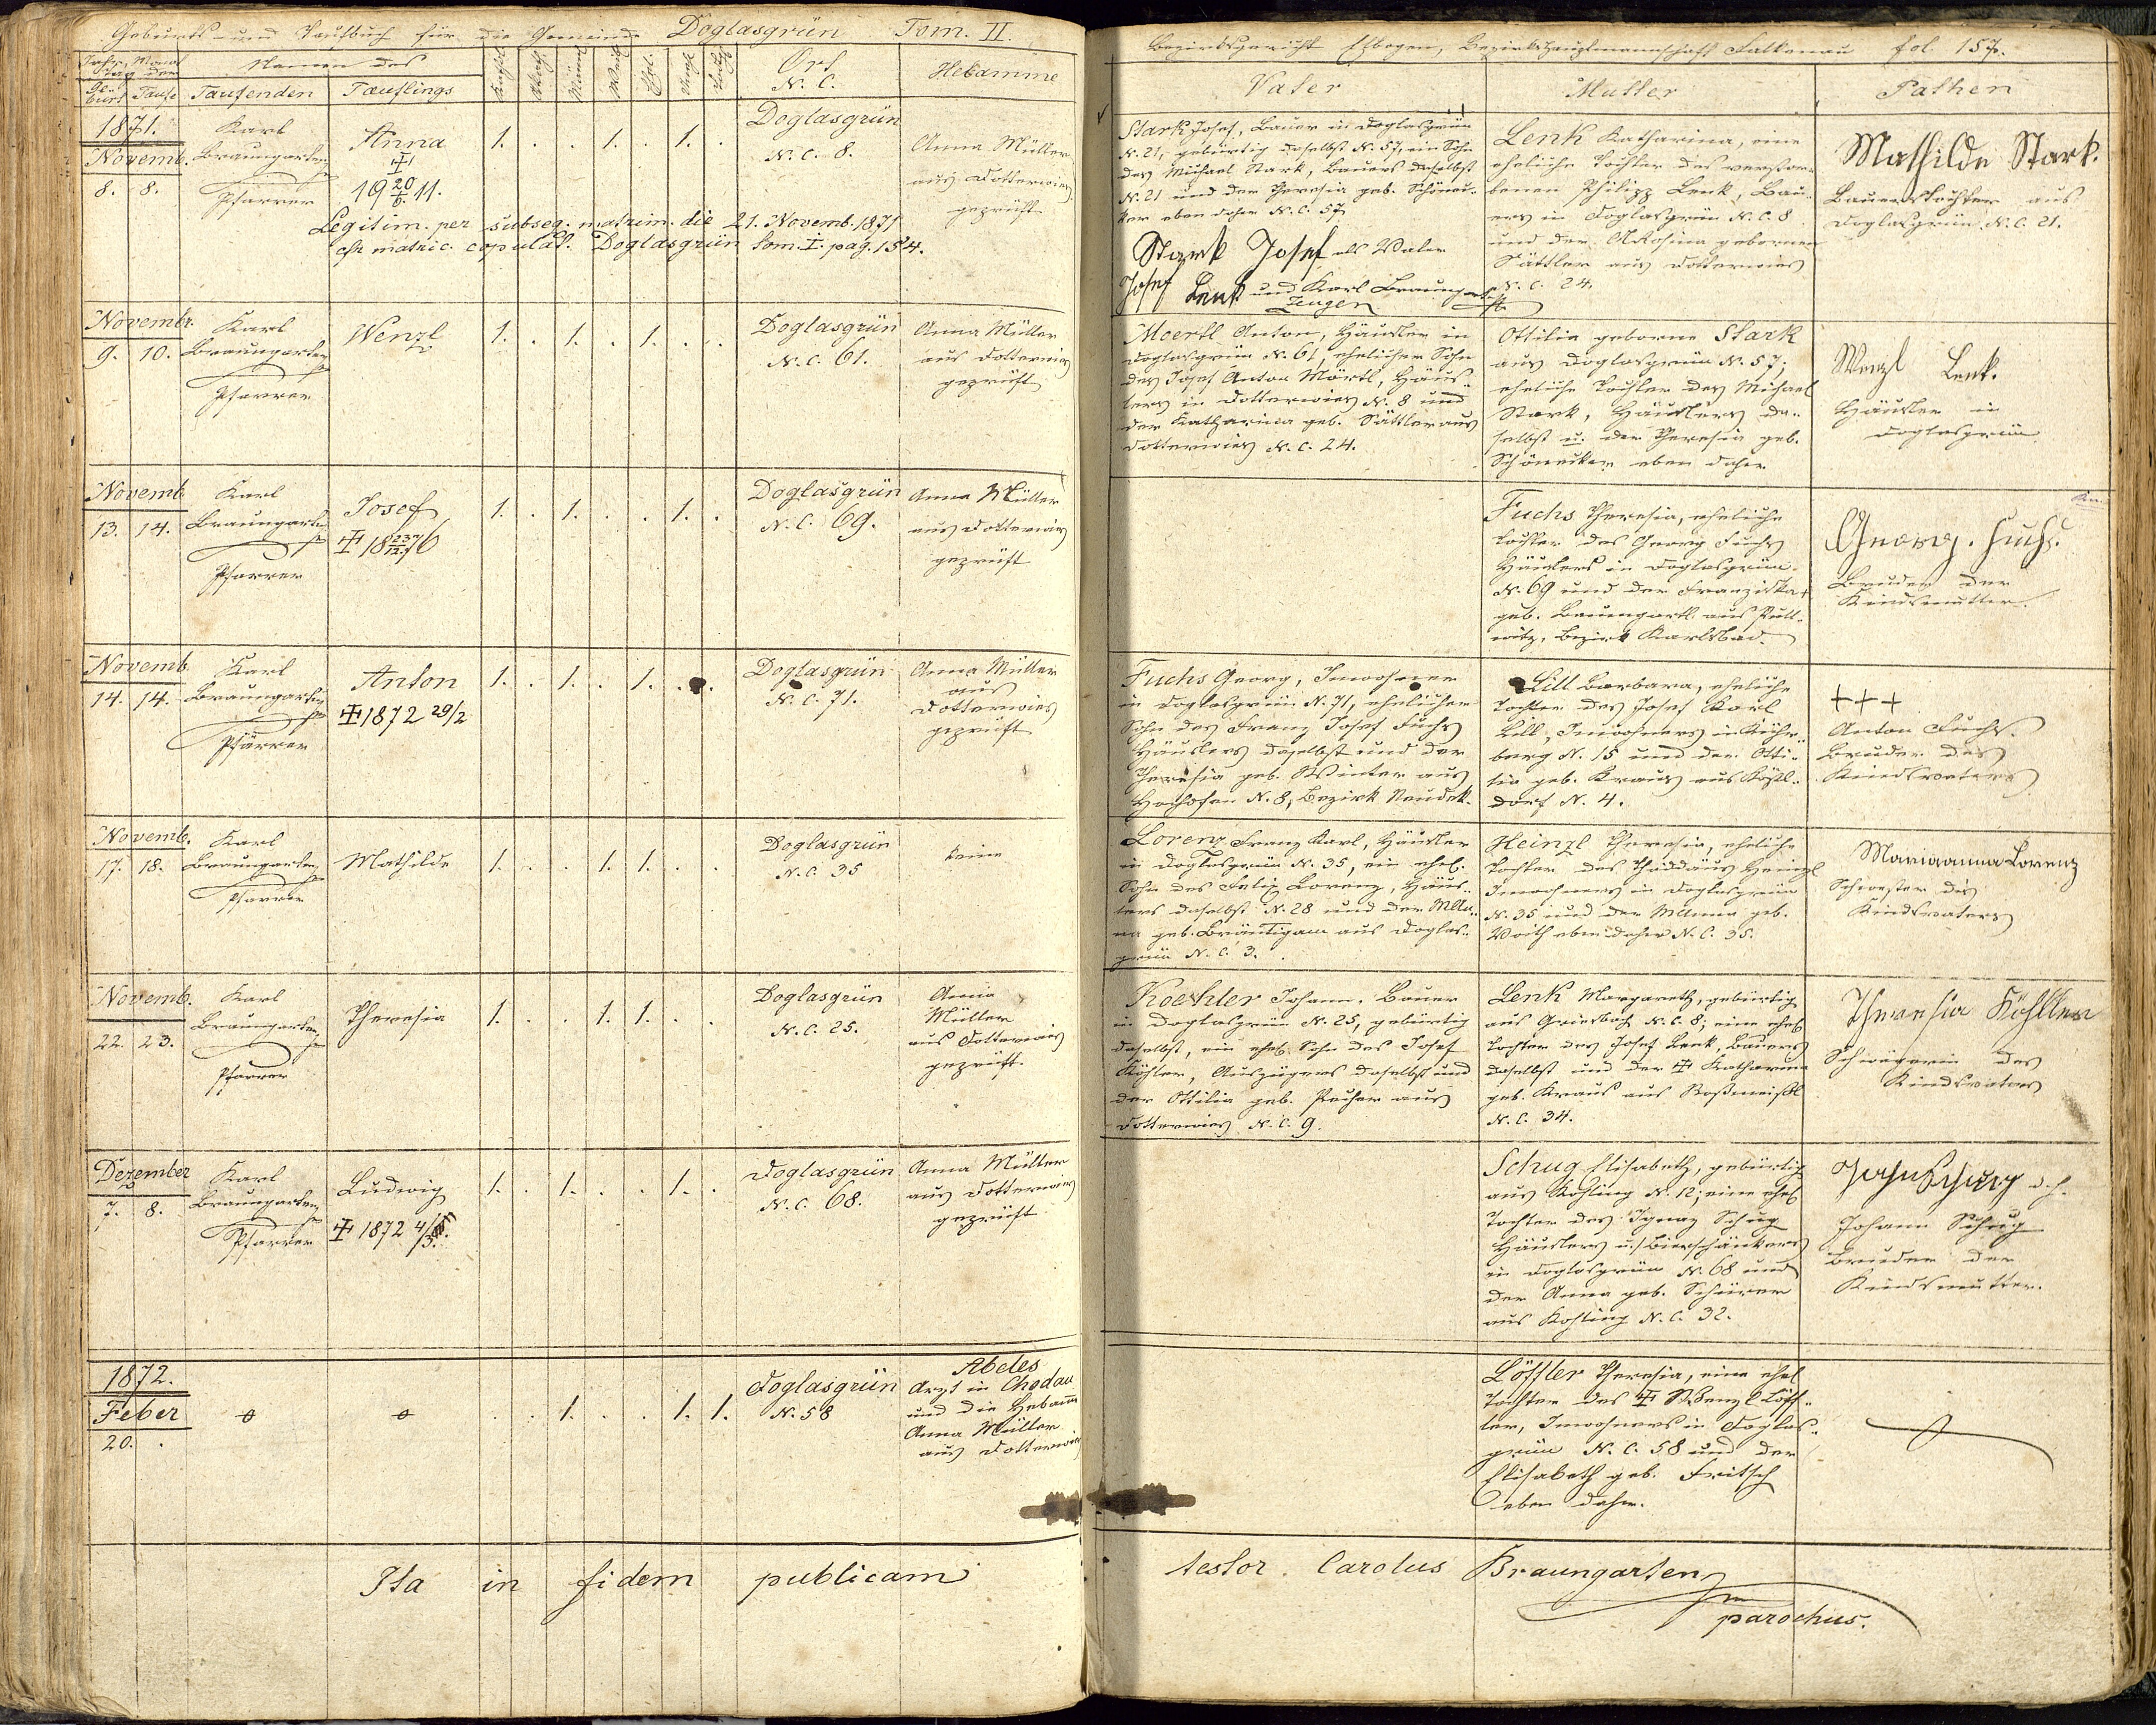 Geburts- und Taufbuch für die Gemeinde Doglasgrün Tom. II.
Jahr, Monat
Tag der
Ge-
burt Taufe
Namen des
Taufenden Täuflings
Ort
N. C.
Hebamme
1871.
Novemb.
8. 8.
Karl
Braungarten
Pfarrer
Anna
19 20/6 11.
1. . . 1. . 1. .
Doglasgrün
N. C. 8.
Anna Müller
aus Dotterwies
geprüft
Legitim. per subseq. matrim. die 21. Novemb. 1871
matric. copulat. Doglasgrün Tom. I. pag. 154.
Novembr.
9. 10.
Karl
Braungarten
Pfarrer
Wenzl
1. . 1. . 1. . .
Doglasgrün
N. C. 61.
Anna Müller
aus Dotterwies
geprüft
Novemb.
13. 14.
Karl
Braungarten
Pfarrer
Josef
18 23/12 76
1. . 1. . . 1. .
Doglasgrün
N. C. 69.
Anna Müller
aus Dotterwies
geprüft
Novemb.
14. 14.
Karl
Braungarten
Pfarrer
Anton
1872 29/2
1. . 1. . 1. . .
Doglasgrün
N. C. 71.
Anna Müller
aus
Dotterwies
geprüft
Novemb.
17. 18.
Karl
Braungarten
Pfarrer
Mathilde
1. . . 1. 1. . .
Doglasgrün
N. C. 35
keine
Novemb.
22. 23.
Karl
Braungarten
Pfarrer
Theresia
1. . . 1. 1. . .
Doglasgrün
N. C. 25.
Anna
Müller
aus Dotterwies
geprüft.
Dezember
7. 8.
Karl
Braungarten
Pfarrer
Ludwig
1872
1. . 1. . . 1. .
Doglasgrün
N. C. 68.
Anna Müller
aus Dotterwies
geprüft
1872.
Feber
20. .
. . 1. . . 1. 1.
Doglasgrün
N. 58
Abeles
Arzt in Chodau
und die Hebamm
Anna Müller
aus Dotterwies
Ita in fidem publicam
Bezirksgericht Elbogen, Bezirkshauptmannschaft Falkenau fol. 157.
Vater Mutter Pathen
Stark Josef, Bauer in Doglasgrün
N. 21, gebürtig daselbst N. 57, ein Sohn
des Michael Stark, Bauers daselbst
N. 21 und der Theresia geb. Schönec-
ker eben daher N. C. 57
Stark Josef als Vater
Josef Lenk und Karl Braungarten
Zeugen
Lenk Katharina, eine
eheliche Tochter des verstor-
benen Philipp Lenk, Bau-
ers in Doglasgrün N. C. 8
und der Rosina gebornen
Sättler aus Dotterwies
N. C. 24.
Mathilde Stark.
Bauerstochter aus
Doglasgrün N. C. 21.
Moertl Anton, Häusler in
Doglasgrün N. 61, ehelicher Sohn
des Josef Anton Mörtl, Häus-
lers in Dotterwies N. 8 und
der Katharina geb. Sättler aus
Dotterwies N. C. 24.
Ottilia geborne Stark
aus Doglasgrün N. 57;
eheliche Tochter des Michael
Stark, Häuslers da-
selbst u. der Theresia geb.
Schönecker eben daher
Wenzl Lenk.
Häusler in
Doglasgrün.
Fuchs Theresia, eheliche
Tochter des Georg Fuchs
Häuslers in Doglasgrün
N. 69 und der Franziska
geb. Baumgartl aus Putt-
witz, Bezirk Karlsbad.
Georg. Fuchs.
Bruder der
Kindsmutter.
Fuchs Georg, Inwohner
in Doglasgrün N. 71, ehelicher
Sohn des Franz Josef Fuchs
Häuslers daselbst und der
Theresia geb. Winter aus
Hochofen N. 8, Bezirk Neudek.
Lill Barbara, eheliche
Tochter des Josef Karl
Lill, Inwohners in
berg N. 15 und der Otti-
lia geb. Kraus aus
dorf N. 4.
+++
Anton Fuchs.
Bruder des
Kindsvaters
Lorenz Franz Karl, Häusler
in Doglasgrün N. 35, ein ehel.
Sohn des Felix Lorenz, Häus-
lers daselbst N. 28 und der
geb. Bräutigam aus Doglas-
grün N. C. 3.
Heinzl Theresia, eheliche
Tochter des Thaddäus Heinzl
Inwohners in Doglasgrün
N. 35 und der MAnna geb.
Voith eben daher N. C. 35.
Mariaanna Lorenz
Schwester des
Kindsvaters
Koehler Johann, Bauer
in Doglasgrün N. 25, gebürtig
daselbst, ein ehel. Sohn des Josef
Köhler, Auszüglers daselbst und
der Ottilia geb. Pecher aus
Dotterwies N. C. 9.
Lenk Margareth, gebürtig
aus Griesbach N. C. 8; eine ehel.
Tochter des Josef Lenk, Bauers
daselbst und der Katharina
geb. Kraus aus Roßmeisl
N. C. 34.
Theresia Köhller
Schwägerin des
Kindsvaters
Schug Elisabeth, gebürtig
aus Kohling N. 12; eine ehel.
Tochter des Ignaz Schug
Häuslers u. Bierschänkers
in Doglasgrün N. 68 und
der Anna geb. Schürer
aus Kohling N. C. 32.
Johann Schug
Bruder der
Kindsmutter.
Löffler Theresia, eine ehel.
Tochter des Wenzl Löff-
ler, Inwohners in Doglas-
grün N. C. 58 und der
Elisabeth geb. Fritsch
eben daher.
testor. Carolus Braungarten
parochus.